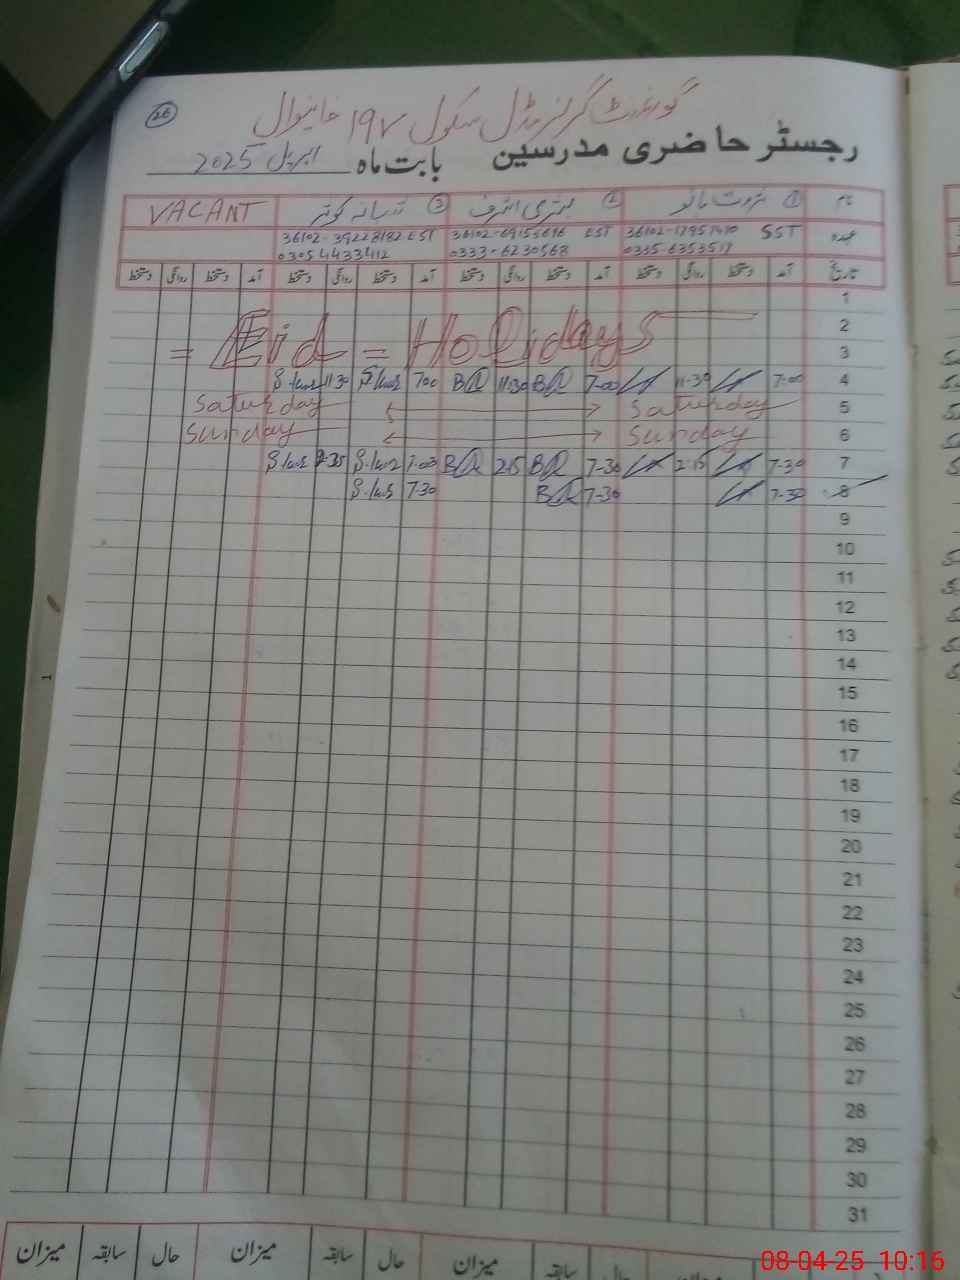 26
گورنمنٹ گرلز مڈل سکول ۱۹۷ خانیوال
رجسٹر حاضری مدرسین بابت ماہ اپریل 2025
نام ① ثروت بانو ② بشریٰ اشرف ③ رخسانہ کوثر VACANT
عہدہ SST EST 36102- EST
0335-6353517 0333-6230568 03054433412
تاریخ آمد دستخط روانگی دستخط آمد دستخط روانگی دستخط آمد دستخط روانگی دستخط آمد دستخط روانگی دستخط
1
2
= Eid = Holidays
3
4 7-00 11-30 7-00 BA 11-30 BA 7-00 11-30
5 Saturday Saturday
6 Sunday Sunday
7 7-30 2-15 7-30 BA 2-15 BA
8 7-30 7-30 BA 7-30
9
10
11
12
13
14
15
16
17
18
19
20
21
22
23
24
25
26
27
28
29
30
31
حال سابقہ میزان حال سابقہ میزان حال سابقہ میزان
1
08-04-25 10:16